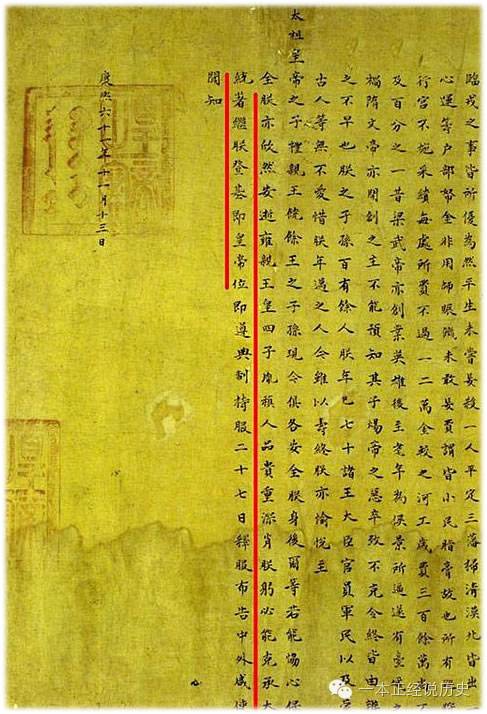 臨戎之事皆所優為然平生未嘗妄殺一人平定三藩掃清漠北皆出
心運籌戶部帑金非用師賑饑未敢妄費謂皆小民脂膏故也所有
行宮不施采繢每處所費不過一二萬金較之河工歲費三百餘萬尚
及百分之一昔梁武帝亦創業英雄後至耄年為侯景所逼遂有臺
禍隋文帝亦開創之主不能預知其子煬帝之惡卒致不克令終皆由
之不早也朕之子孫百有餘人朕年已七十諸王大臣官員軍民以及
古人等無不愛惜朕年邁之人今雖以壽終朕亦愉悅至
太祖皇帝之子禮親王饒餘王之子孫現今俱各安全朕身後爾等若能協心保
全朕亦欣然安逝雍親王皇四子胤禛人品貴重深肖朕躬必能克承大
統著繼朕登基即皇帝位即遵典制持服二十七日釋服布告中外咸使
聞知
康熙六十一年十一月十三日
一本正经说历史